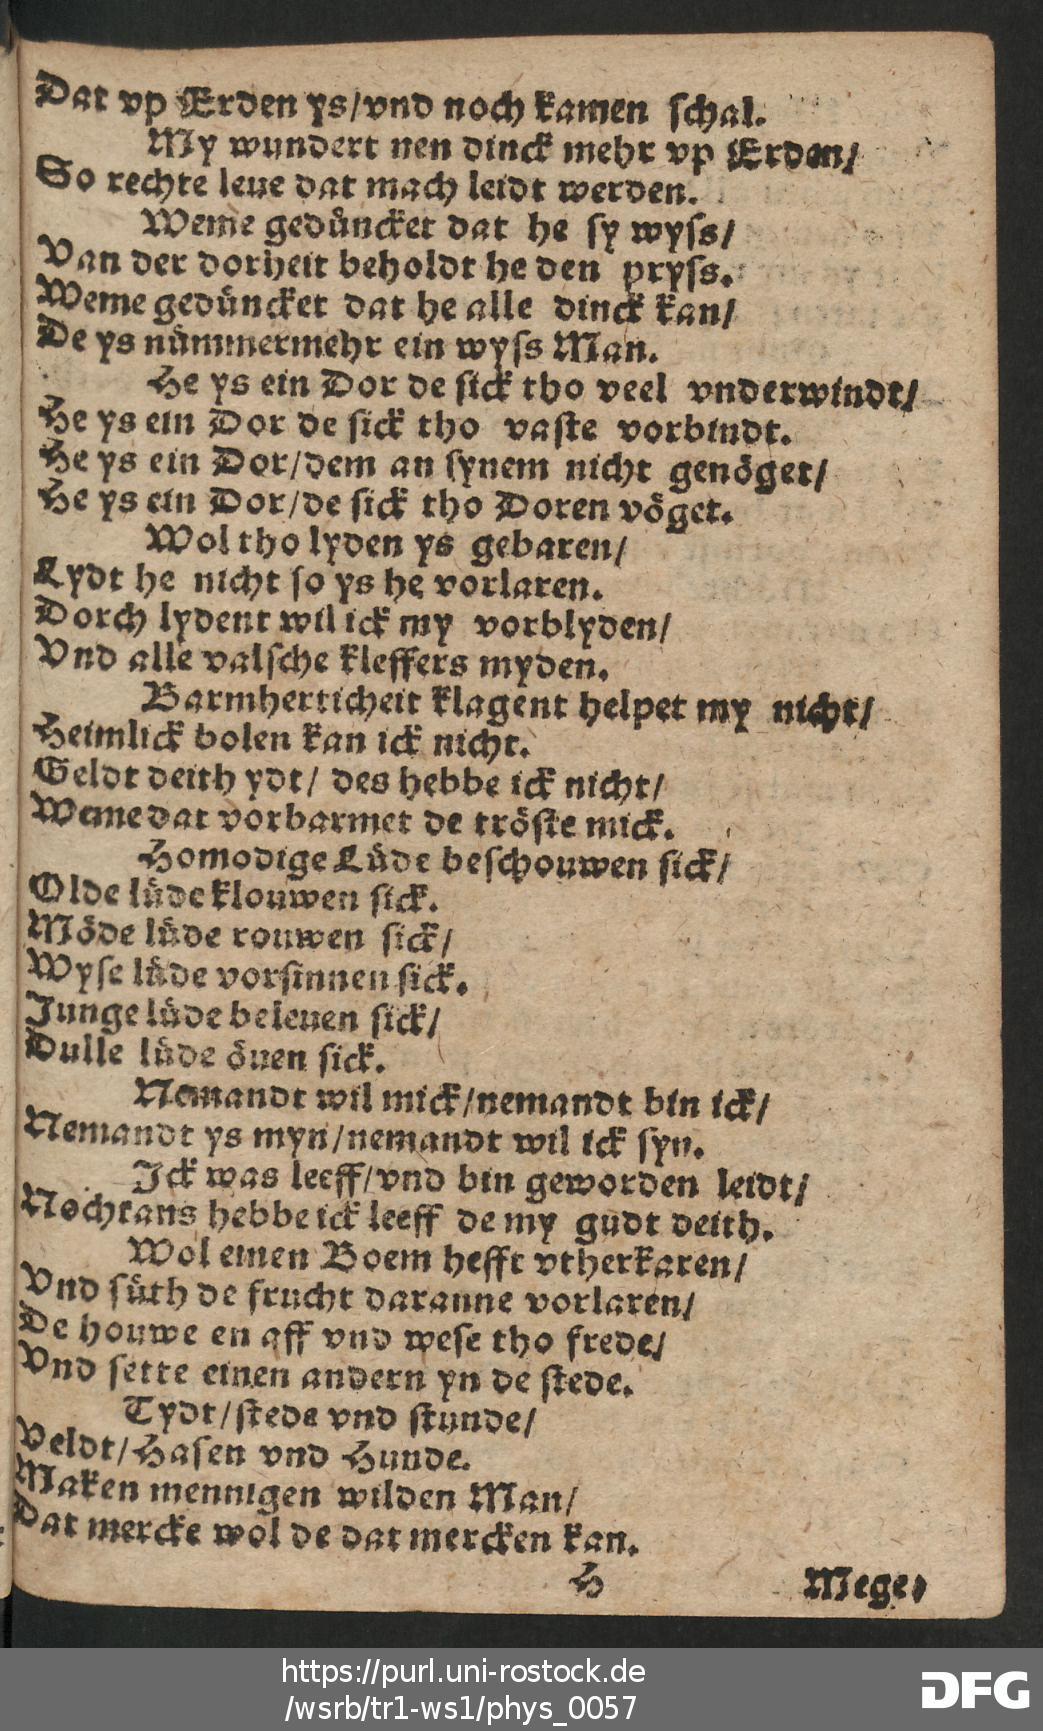 Dat vp Erden ys/vnd noch kamen schal.
My wundert nen dinck mehr vp Erden/
So rechte leue dat mach leidt werden.
Weme gedůncket dat he sy wyss/
Van der dorheit beholdt he den pryss.
Weme gedůncket dat he alle dinck kan/
De ys nůmmermehr ein wyss Man.
He ys ein Dor de sick tho veel vnderwindt/
He ys ein Dor de sick tho vaste vorbindt.
He ys ein Dor/dem an synem nicht genöget/
He ys ein Dor/de sick tho Doren vöget.
Wol tho lyden ys gebaren/
Lydt he nicht so ys he vorlaren.
Dorch lydent wil ick my vorblyden/
Vnd alle valsche kleffers myden.
Barmherticheit klagent helpet my nicht/
Heimlick bolen kan ick nicht.
Geldt deith ydt/ des hebbe ick nicht/
Weme dat vorbarmet de tröste mick.
Homodige Lůde beschouwen sick/
Olde lůde klouwen sick.
Möde lůde rouwen sick/
Wyse lůde vorsinnen sick.
Junge lůde beleuen sick/
Dulle lůde öuen sick.
Nemandt wil mick/nemandt bin ick/
Nemandt ys myn/nemandt wil ick syn.
Ick was leeff/vnd bin geworden leidt/
Nochtans hebbe ick leeff de my gudt deith.
Wol einen Boem hefft vtherkaren/
Vnd sůth de frucht daranne vorlaren/
De houwe en aff vnd wese tho frede/
Vnd sette einen andern yn de stede.
Tydt/stede vnd stunde/
Veldt/Hasen vnd Hunde.
Maken mennigen wilden Man/
Dat mercke wol de dat mercken kan.
H Mege,
https://purl.uni-rostock.de
/wsrb/tr1-ws1/phys_0057
DFG